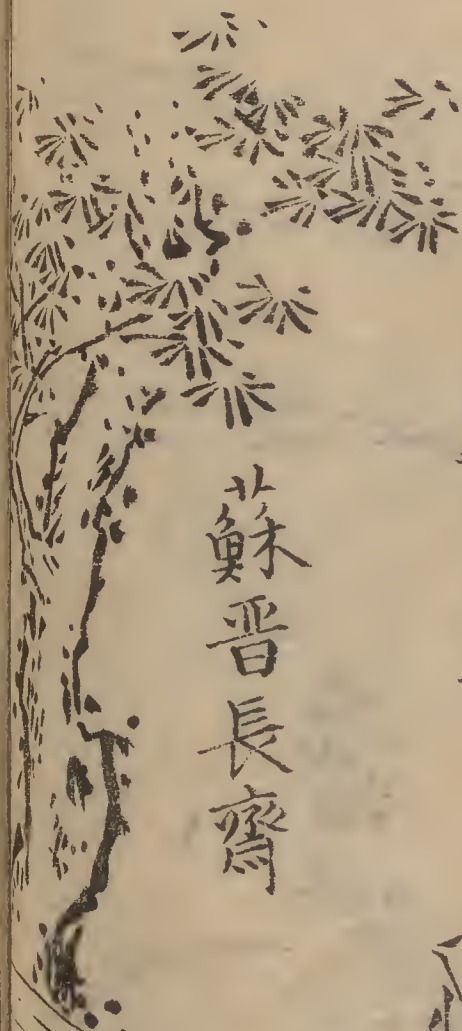 蘇晋長齋